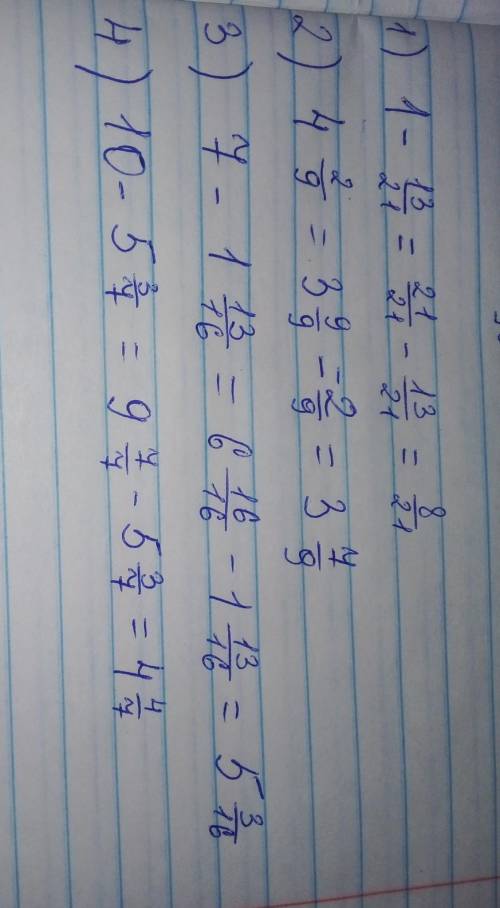 1) 1 - 13/21 = 21/21 - 13/21 = 8/21
2) 4 2/9 = 3 9/9 - 2/9 = 3 7/9
3) 7 - 1 13/16 = 6 16/16 - 1 13/16 = 5 3/16
4) 10 - 5 3/7 = 9 7/7 - 5 3/7 = 4 4/7